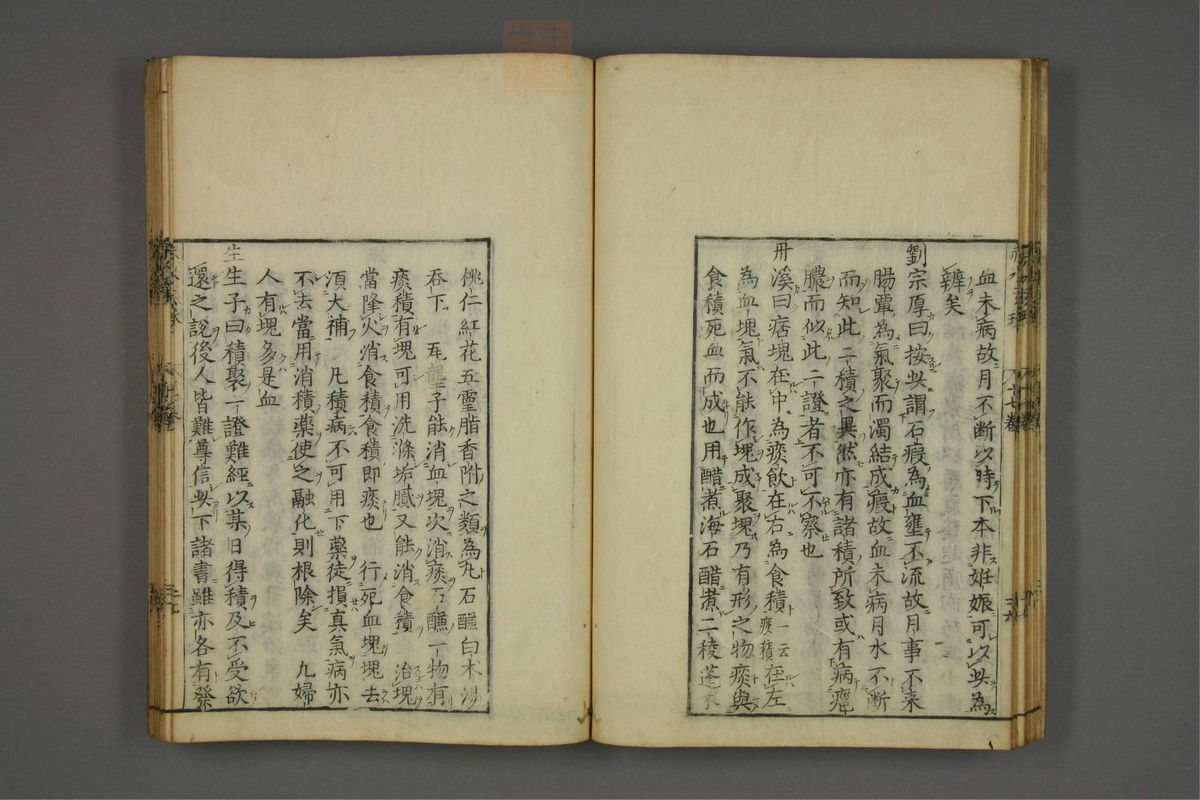 血未病故月不断以時下本非姙娠可以此為
辨矣
劉宗厚曰按此謂石瘕為血壅不流故月事不来
腸覃為氣聚而濁結成瘕故血未病月水不断
而知此二積之異然亦有諸積所致或有病癰
膿而似此二證者不可不察也
丹溪曰痞塊在中為痰飲在右為食積一云痰積在左
為血塊氣不能作塊成聚塊乃有形之物痰與
食積死血而成也用醋煮海石醋煮三稜蓬朮
桃仁紅花五靈脂香附之類為丸石醶白木湯
吞下 瓦龍子能消血塊次消痰石醶一物有
痰積有塊可用洗滌垢膩又能消食積 治塊
當降火消食積食積即痰也 行死血塊塊去
須大補 凡積病不可用下藥徒損真氣病亦
不去當用消積藥使之融化則根除矣 凡婦
人有塊多是血
生生子曰積聚一證難經以某日得積及不受欲
還之說後人皆難尊信此下諸書雖亦各有發